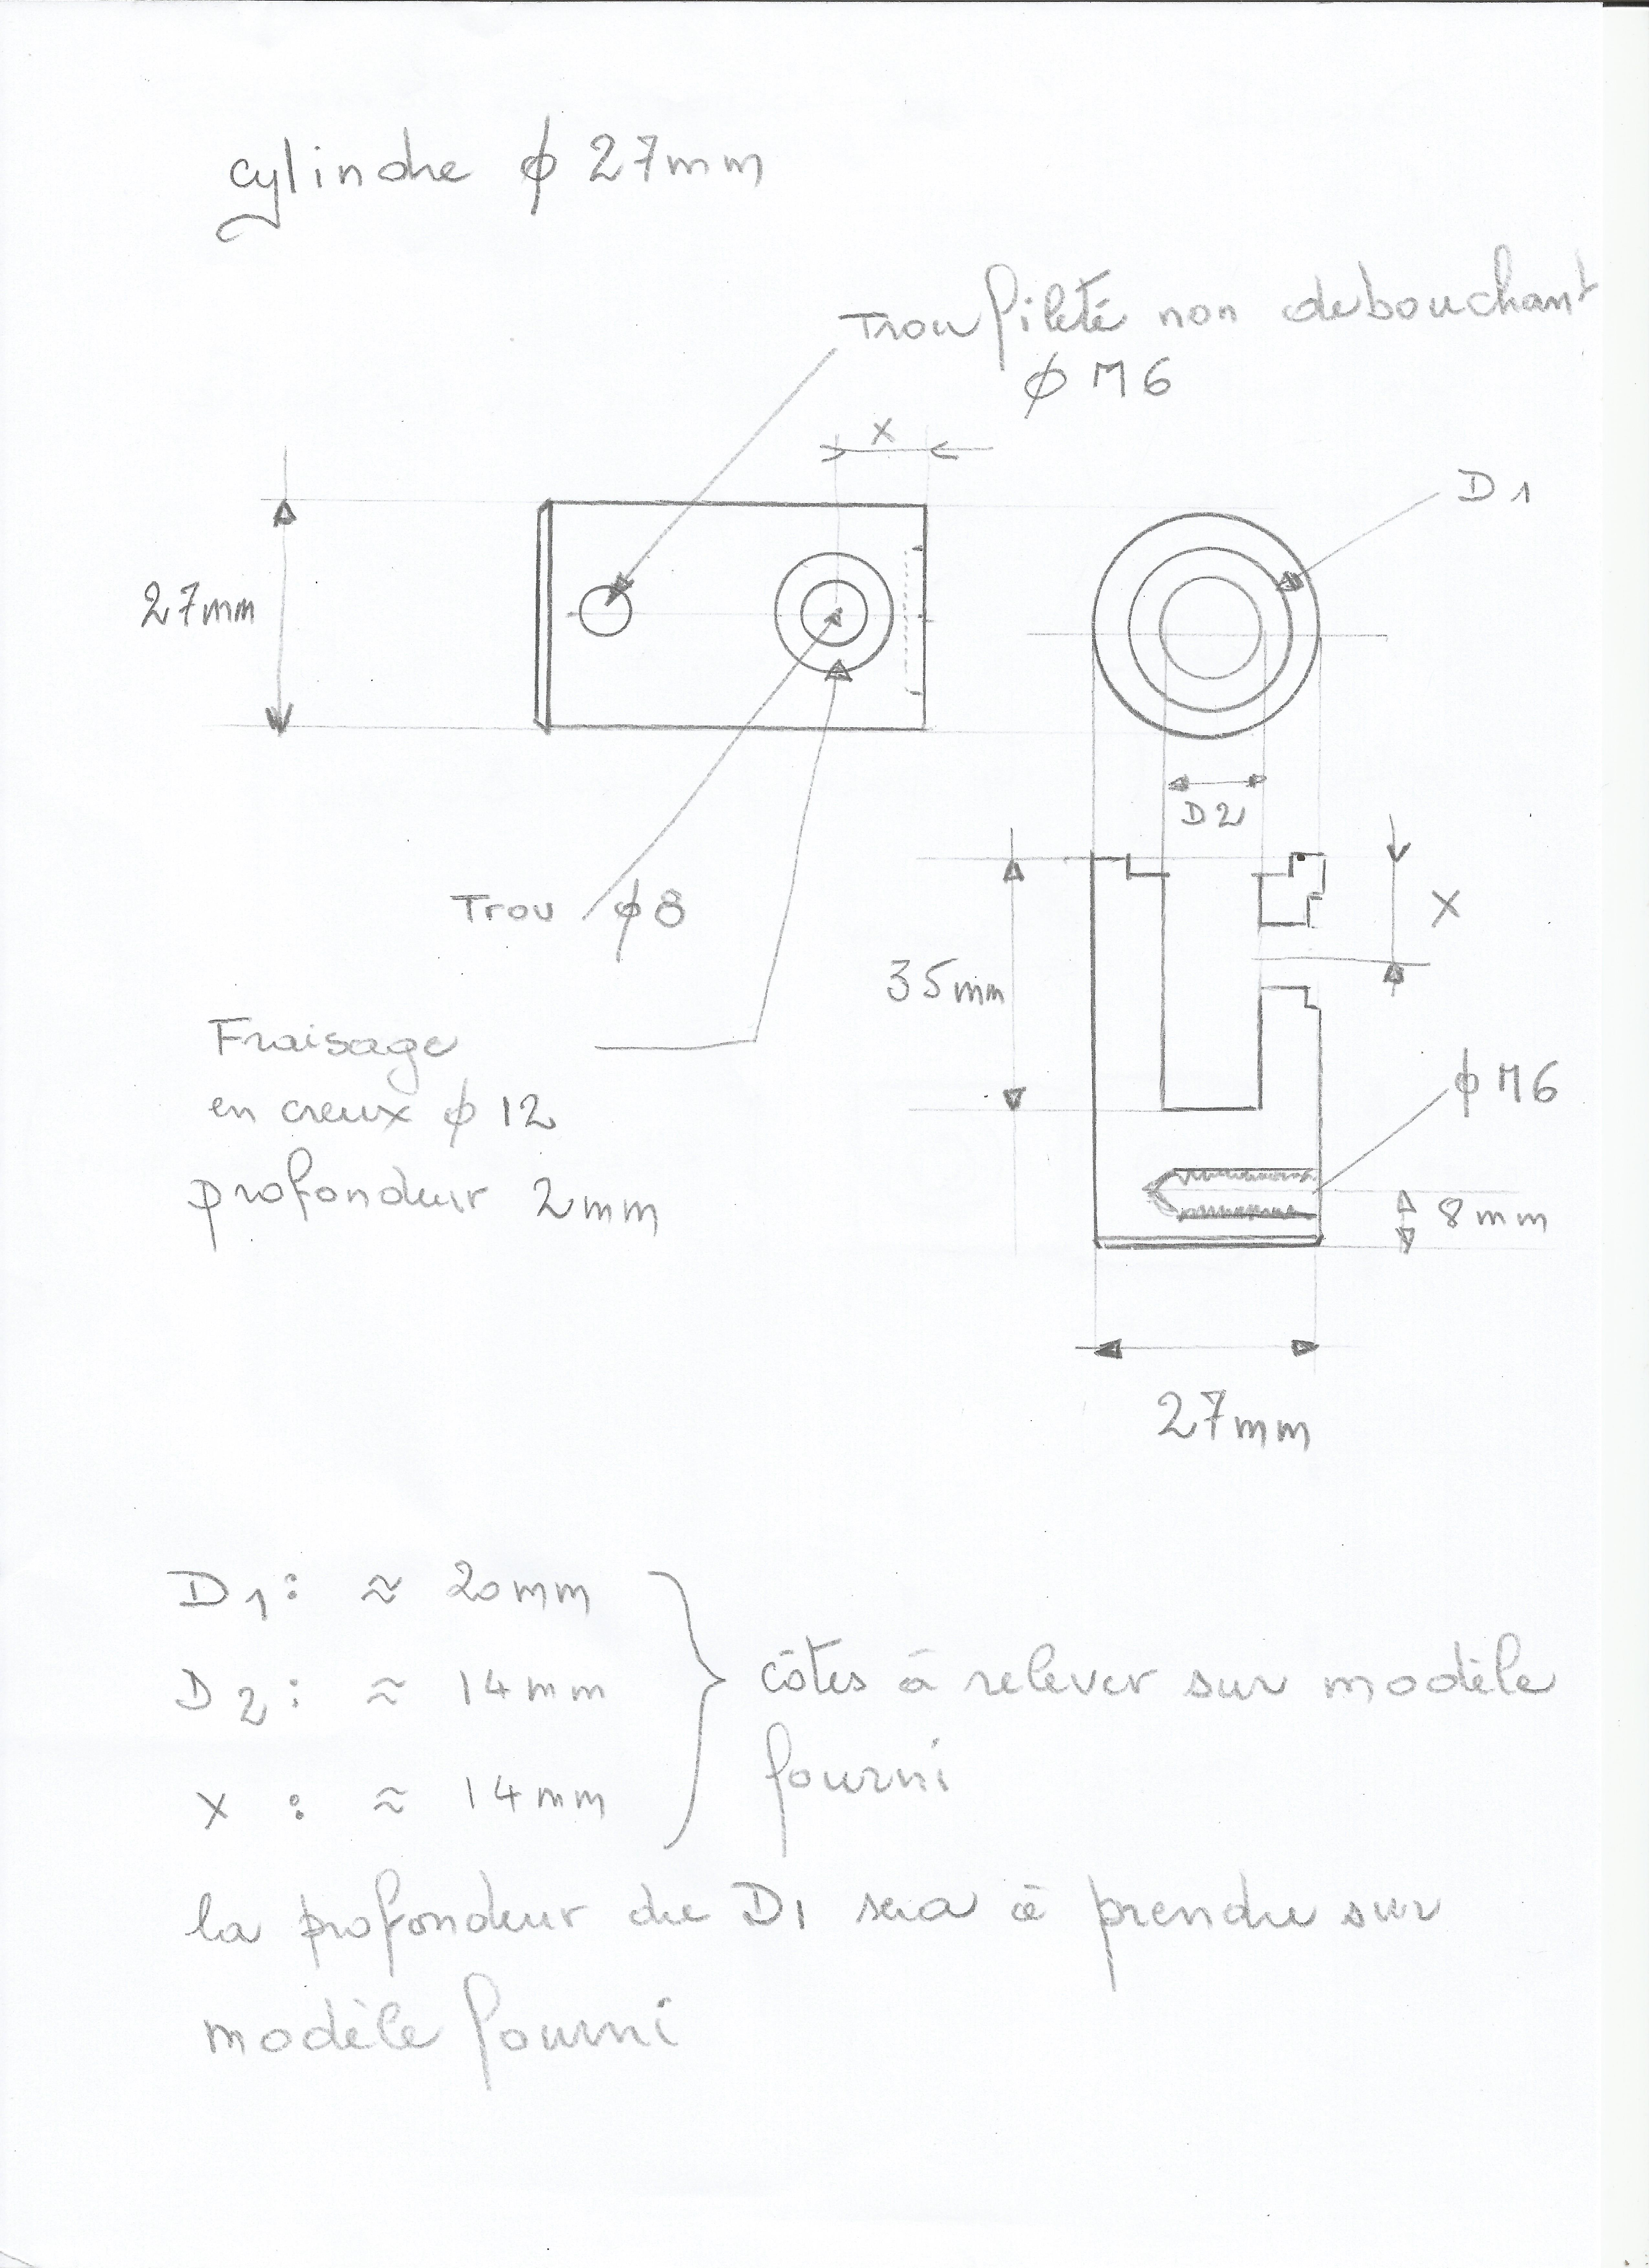 cylindre ϕ 27mm
Trou fileté non debouchant
ϕ M6
X
D1
27mm
D2
Trou ϕ8
X
35mm
Fraisage
en creux ϕ 12
profondeur 2mm
ϕ M6
8mm
27mm
D1: ≈ 20mm
D2: ≈ 14mm
X : ≈ 14mm
côtes à relever sur modèle
fourni
la profondeur de D1 sera à prendre sur
modèle fourni